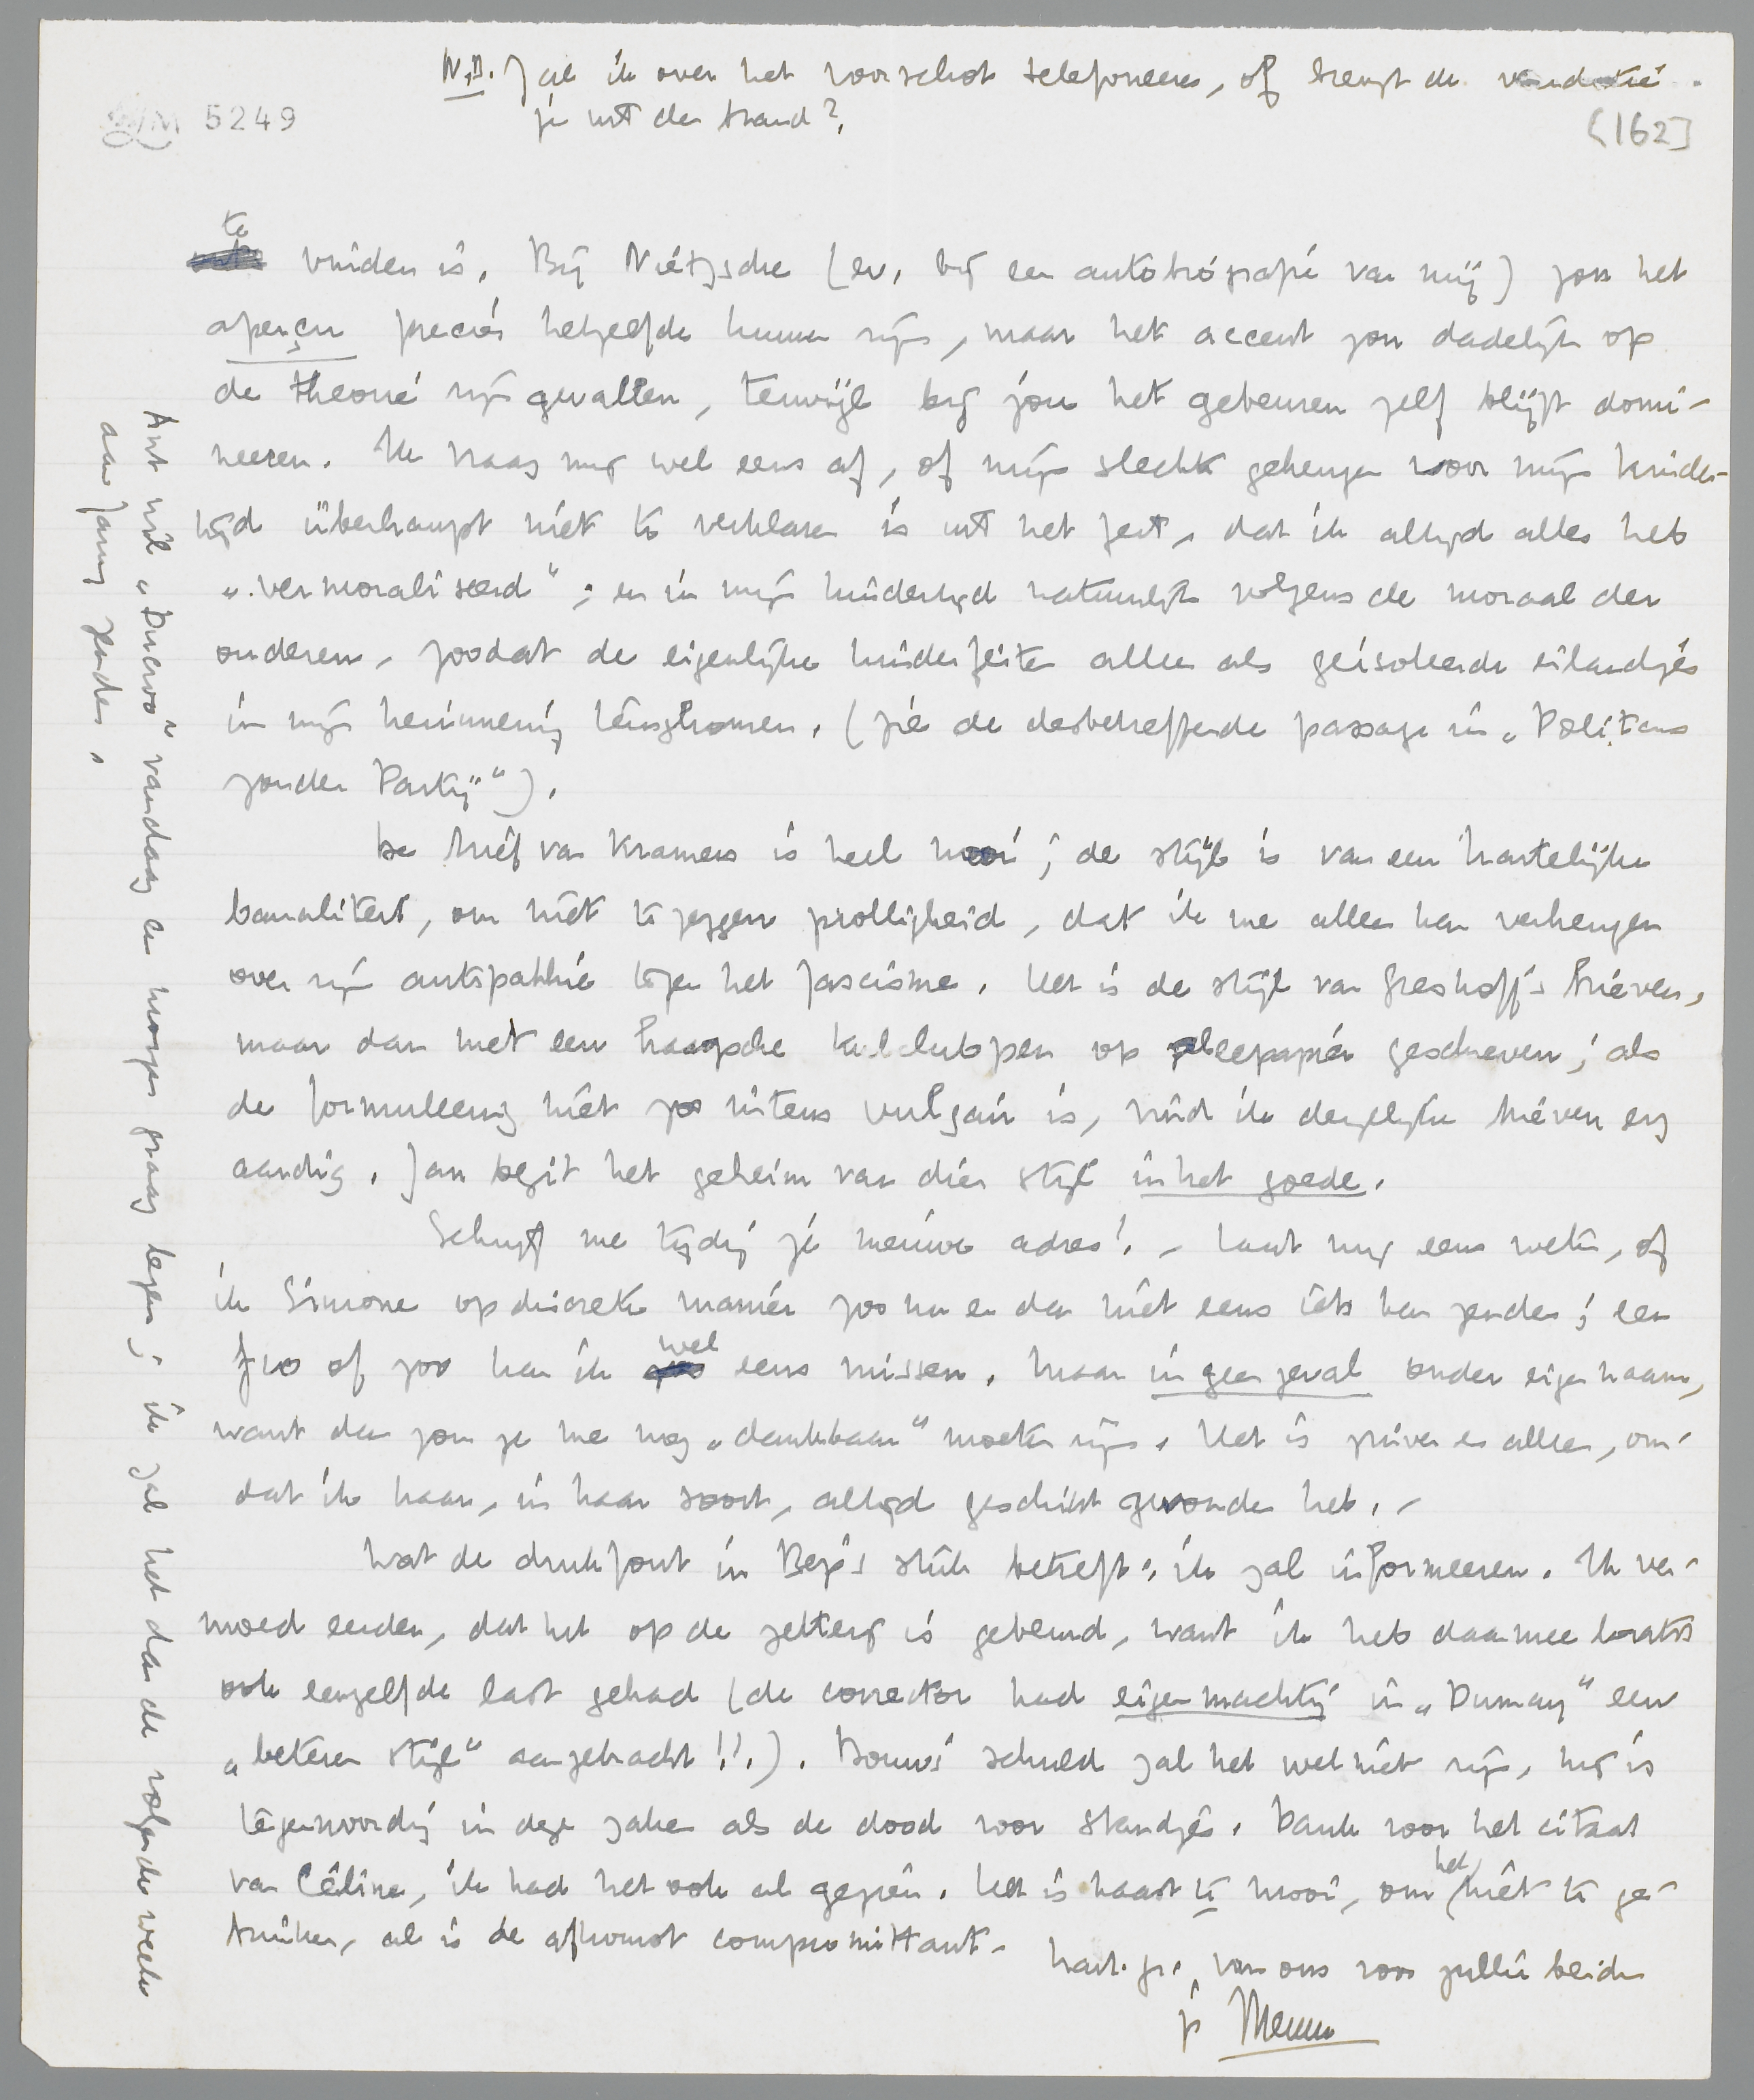 N.B. Zal ik over het voorschot telefoneeren, of brengt de vendutie
je uit den brand?
5249
[162]
te vinden is. Bij Nietzsche (ev. bij een autobiografie van mij) zou het
aperçu precies hetzelfde kunnen zijn, maar het accent zou dadelijk op
de theorie zijn gevallen, terwijl bij jou het gebeuren zelf blijft domi-
neeren. Ik vraag mij wel eens af, of mijn slecht geheugen voor mijn kinder-
tijd überhaupt niet te verklaren is uit het feit, dat ik altijd alles heb
„vermoraliseerd"; en in mijn kindertijd natuurlijk volgens de moraal der
anderen, zoodat de eigenlijke kinderfeiten alleen als geïsoleerde eilandjes
in mijn herinnering terugkomen. (zie de desbetreffende passage in „Politicus
zonder Partij").
De brief van Kramers is heel mooi; de stijl is van een hartelijke
banaliteit, om niet te zeggen prolligheid, dat ik me alleen kan verheugen
over zijn antipathie tegen het fascisme. Het is de stijl van Greshoff's brieven,
maar dan met een haagsche kulclubpen op pleepapier geschreven; als
de formuleering niet zoo uiterst vulgair is, vind ik dergelijke brieven erg
aardig. Jan bezit het geheim van dien stijl in het goede.
Schrijf me tijdig je nieuwe adres! – Laat mij eens weten, of
ik Simone op discrete manier zoo nu en dan niet eens iets kan zenden; een
f 10 of zoo kan ik wel eens missen. Maar in geen geval onder eigen naam,
want dan zou ze me nog „dankbaar" moeten zijn. Het is puur en alleen, om-
dat ik haar, in haar soort, altijd geschikt gevonden heb. –
Wat de drukfout in Bep's stuk betreft: ik zal informeeren. Ik ver-
moed eerder, dat het op de zetterij is gebeurd, want ik heb daarmee laatst
ook eenzelfde last gehad (de corrector had eigenmachtig in „Dumay" een
„beteren stijl" aangebracht!!). Bouws' schuld zal het wel niet zijn, hij is
tegenwoordig in deze zaken als de dood voor standjes. Dank voor het citaat
van Céline, ik had het ook al gezien. Het is haast te mooi, om het niet te ge-
bruiken, al is de afkomst compromittant.
hart. gr. van ons voor jullie beiden
je Menno
Ant wil „Ducroo" vandaag en morgen graag lezen; ik zal het dan de volgende week
aan Jany zenden.